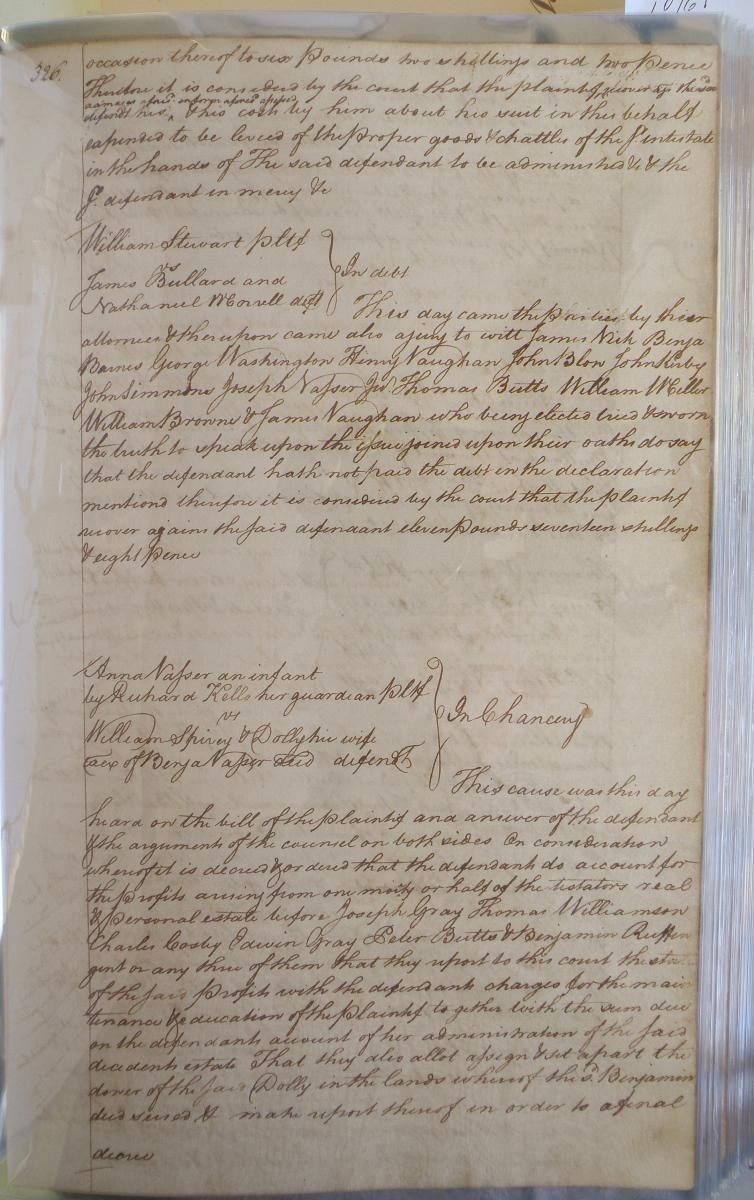 326.
occasion thereof to six Pounds two shillings and two Pence
Therefore it is considered by the court that the plaintif recover agt the said
damages afores.d in form afores.d assessed
defendt his & his costs by him about his suit in this behalf
expended to be levied of the Proper goods & chattles of the s.d intestate
in the hands of The said defendant to be administred &c & the
s.d defendant in mercy &c
William Stewart pltf
vs
James Bullard and
Nathaniel deft
In debt
This day came the parties by their
attornies & thereupon came also a jury to witt James Nick Benja
Barnes George Washington Henry Vaughan John Blow John Kirby
John Simmons Joseph Vasser Jn.r Thomas Butts William
William Browne & James Vaughan who being elected tried & sworn
the truth to speak upon the issue joined upon their oaths do say
that the defendant hath not paid the debt in the declaration
mentiond therefore it is considered by the court that the plaintif
recover agains the said defendant eleven Pounds seventeen shillings
& eight Pence
Anna Vasser an infant
by Richard Kello her guardian pltf
vs
William Spivey & Dolly his wife
of Benja Vasser defendt
In Chancery
This cause was this day
heard on the bill of the plaintif and answer of the defendant
& the arguments of the counsel on both sides On consideration
whereof it is decreed & ordered that the defendant do account for
the profits arising from one moity or half of the testators real
& personal estate before Joseph Gray Thomas Williamson
Charles Cosby Edwin Gray Peter Butts & Benjamin Ruffin
gent or any three of them that they report to this court the state
of the said Profits with the defendants charges for the main
tenance & education of the plaintif to gether with the sum due
on the defendants account of her administration of the said
decedents estate That they also allot assign & set apart the
dower of the said Dolly in the lands whereof the s.d Benjamin
died seised & make report thereof in order to a final
decree